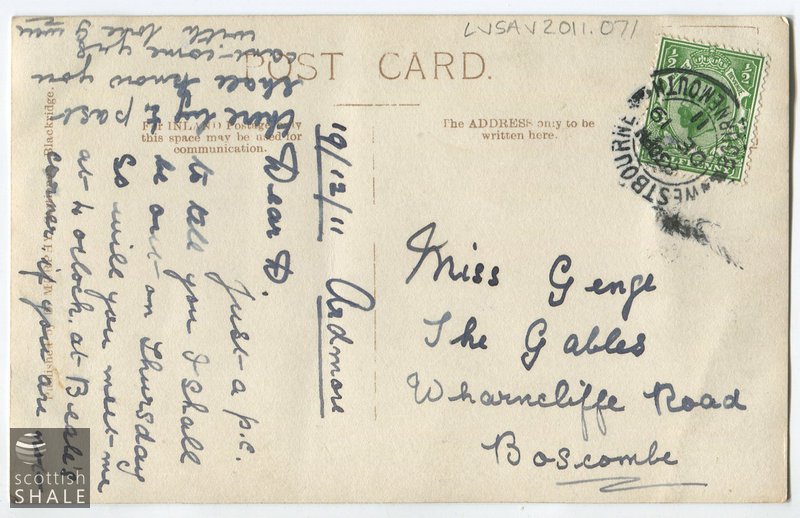 LVSAV2011.071
POST CARD.
For INLAND Postage only
this space may be used for
communication.
The ADDRESS only to be
written here.
19/12/11 Ardmore
Dear D.
Just a p.c.
to tell you I shall
be out on Thursday
So will you meet me
at 2 o'clock at Beale's
corner, if you are not
there by
past
shall know you
cant come yrs
with love
Miss Genge
The Gables
Wharncliffe Road
Boscombe
WESTBOURNE
BOURNEMOUTH
DE 19
11
1/2 1/2
Blackridge.
scottish
SHALE